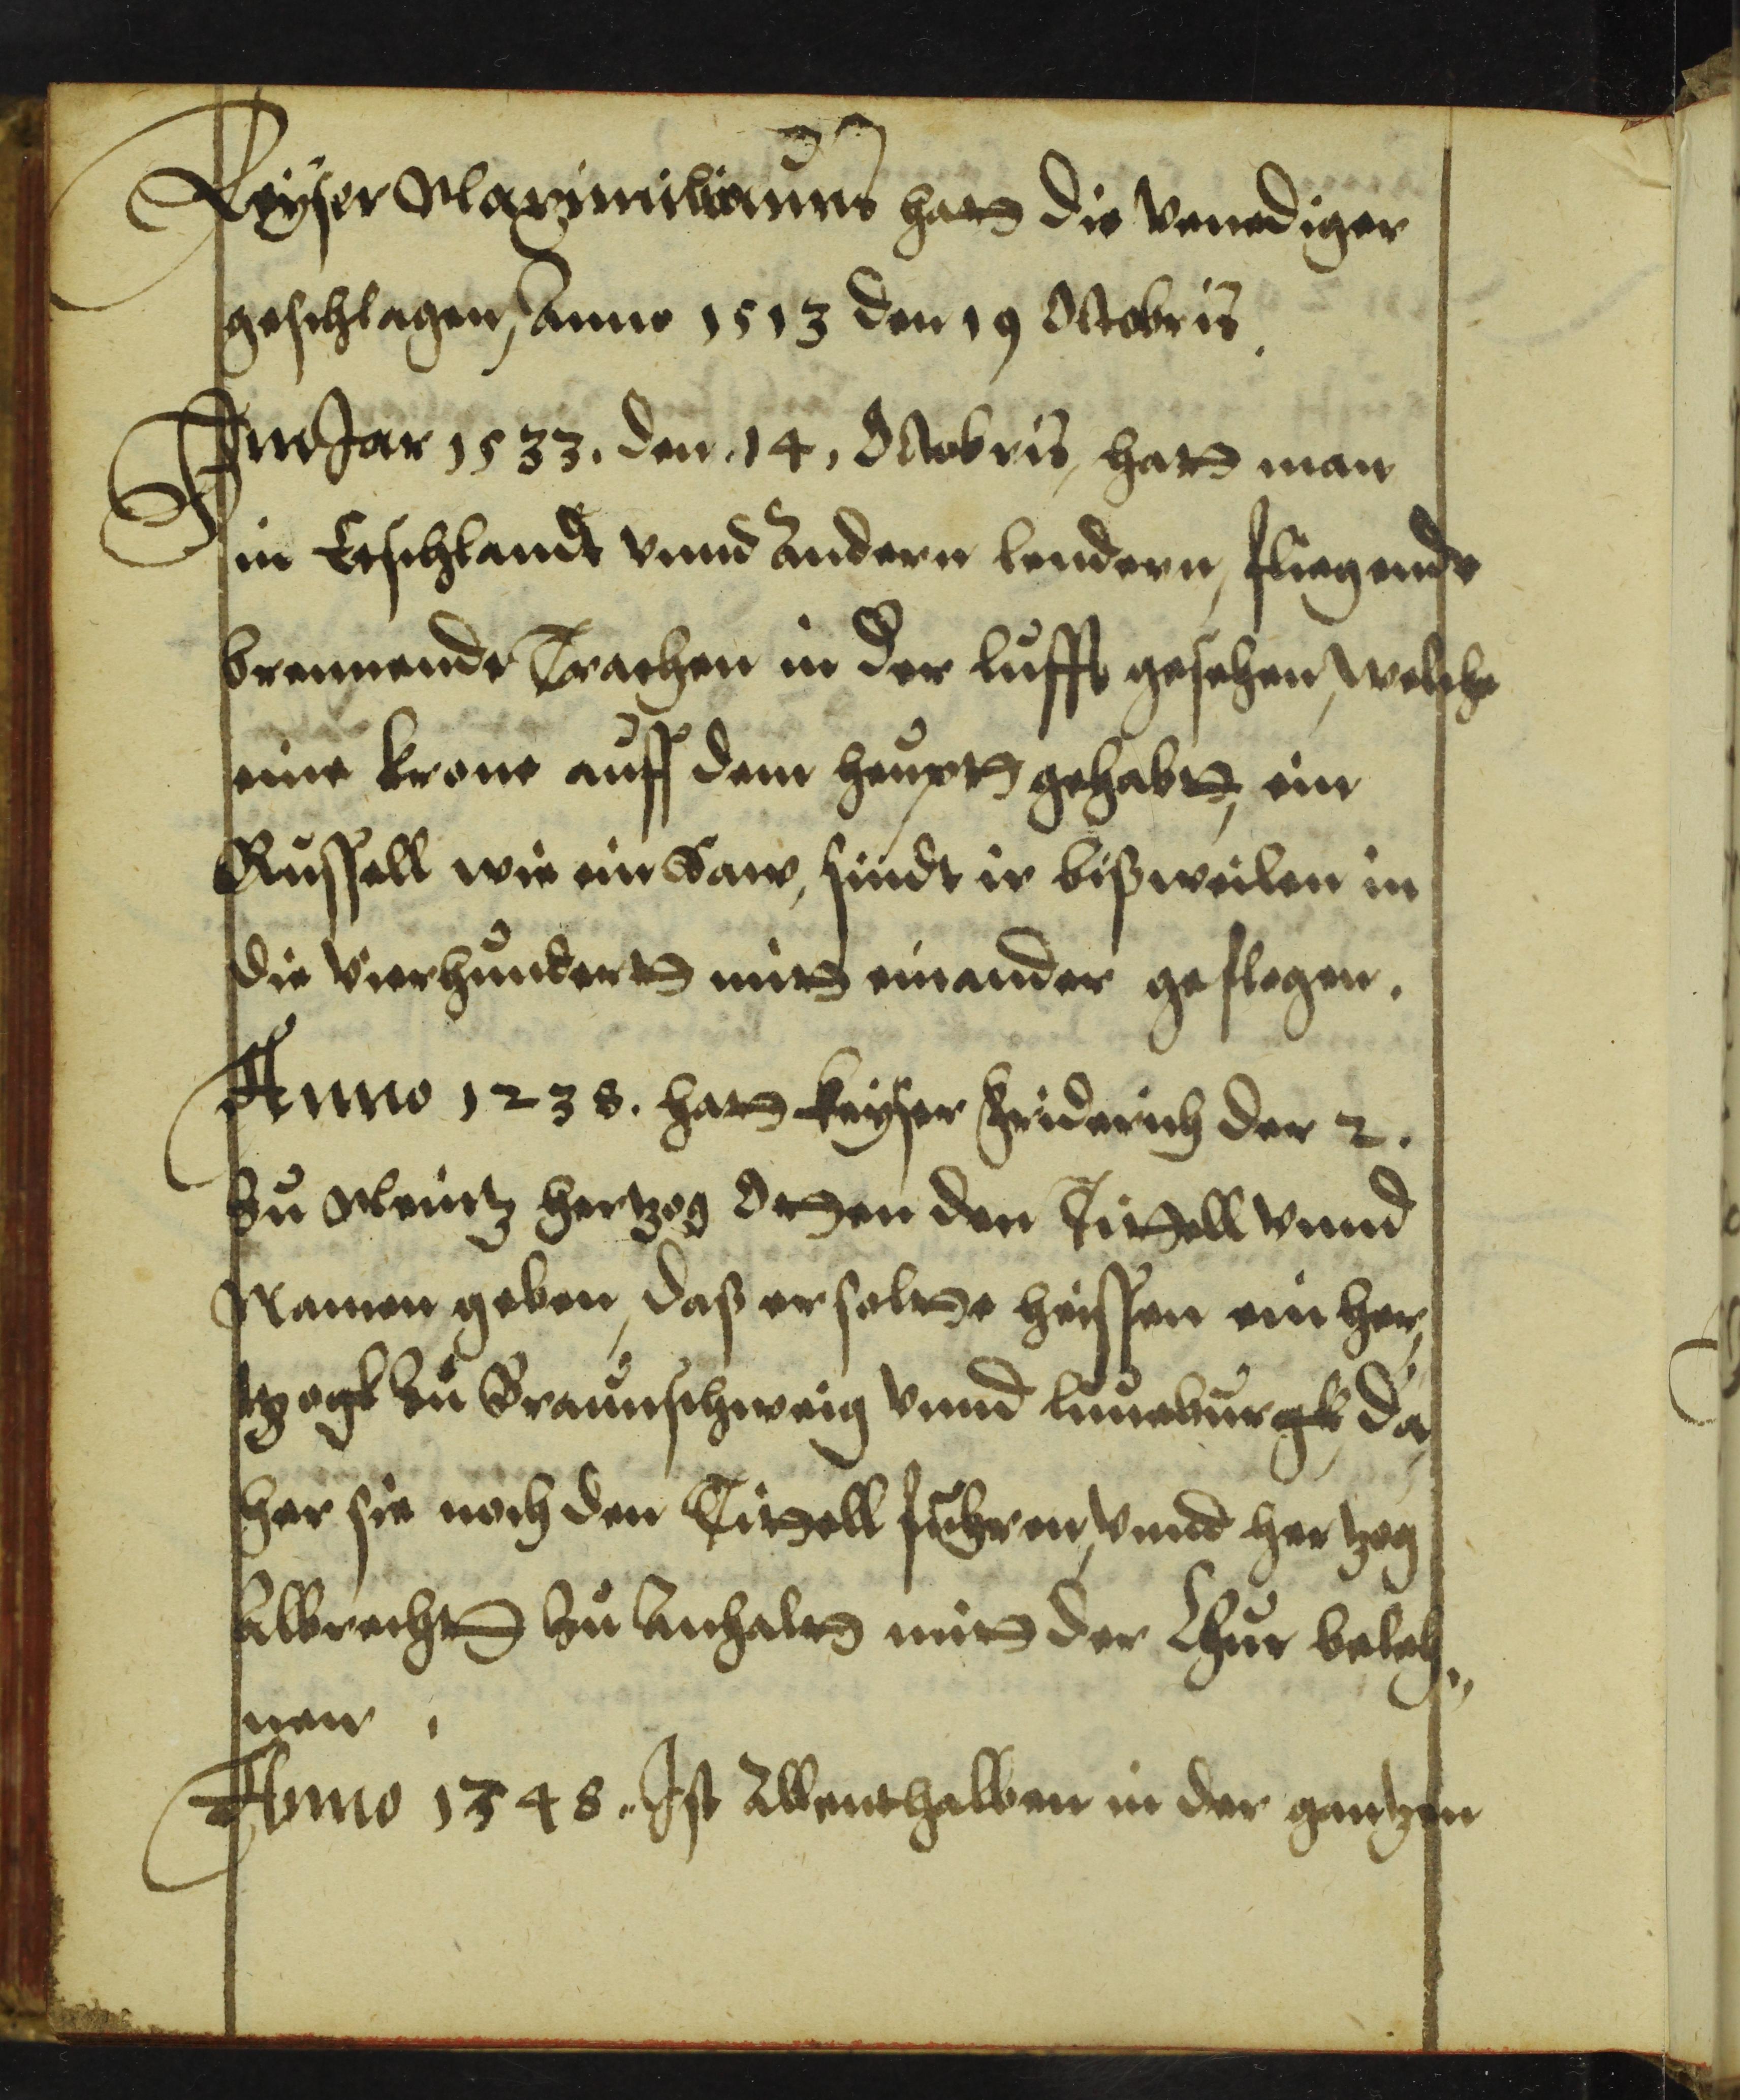 Keÿser Maximilianus hatt die Venediger
geschlagen, Anno 1513 den 19 Octobris.
Im Jar 1533. den 14. Octobris, hatt man
in Etschlandt vnnd Andern lendern, fliegende
brennende Trachen in der lufft gesehen, welche
eine krone auff dem heuptt gehabtt, ein
Russell wie ein Saw, sindt ir bißweilen in
die Vierhundertt mitt einander geflogen.
Anno 1238. hatt keÿser Friderich der 2.
zu Meintz hertzog Otten den Tittell vnnd
Namen geben, daß er soltte heissen ein her,
tzogk zu Braunschweig vnnd luneburgk, da,
her sie noch den Tittell fuhren, vnnd hertzog
Albrechtt zu Anhaltt mitt der Chur beleh„
nen.
Anno 1348. Ist Allenthalben in der gantzen